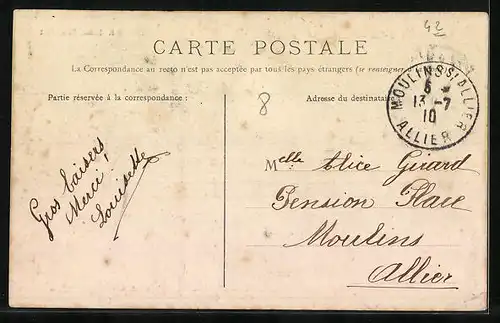 42
CARTE POSTALE
La Correspondance au recto n'est pas acceptée par tous les pays étrangers (se renseigner
Partie réservée à la correspondance :
8
Adresse du destinataire
MOULINS S/ ALLIER
6
13 -7
10
ALLIER
Gros baisers
Merci !
Louisette
Melle Alice Girard
Pension Place
Moulins
Allier